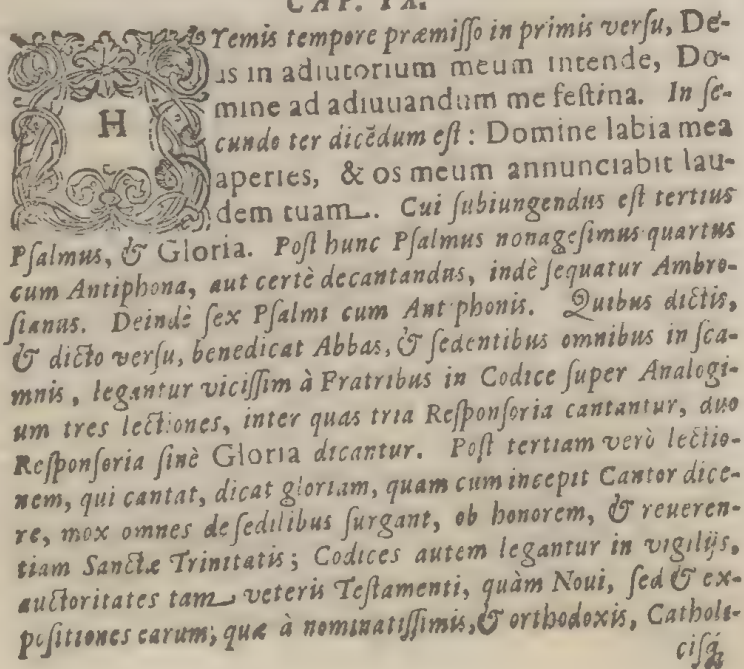 CAP. IX.
HYemis tempore præmiſſo in primis verſu, De-
us in adiutorium meum intende, Do-
mine ad adiuuandum me feſtina. In ſe-
cundo ter dicẽdum eſt : Domine labia mea
aperies, & os meum annunciabit lau-
dem tuam. Cui ſubiungendus eſt tertius
Pſalmus, & Gloria. Poſt hunc Pſalmus nonageſimus quartus
cum Antiphona, aut certè decantandus, indè ſequatur Ambro-
ſianus. Deindè ſex Pſalmi cum Antiphonis. Quibus dictis,
& dicto verſu, benedicat Abbas, & ſedentibus omnibus in ſca-
mnis, legantur viciſſim à Fratribus in Codice ſuper Analogi-
um tres lectiones, inter quas tria Reſponſoria cantantur, duo
Reſponſoria ſinè Gloria dicantur. Poſt tertiam verò lectio-
nem, qui cantat, dicat gloriam, quam cum incepit Cantor dice-
re, mox omnes de ſedilibus ſurgant, ob honorem, & reueren-
tiam Sanctæ Trinitatis ; Codices autem legantur in vigilijs,
auctoritates tam veteris Teſtamenti, quàm Noui, ſed & ex-
poſitiones earum; quæ à nominatiſſimis, & orthodoxis, Catholi-
ciſq́;